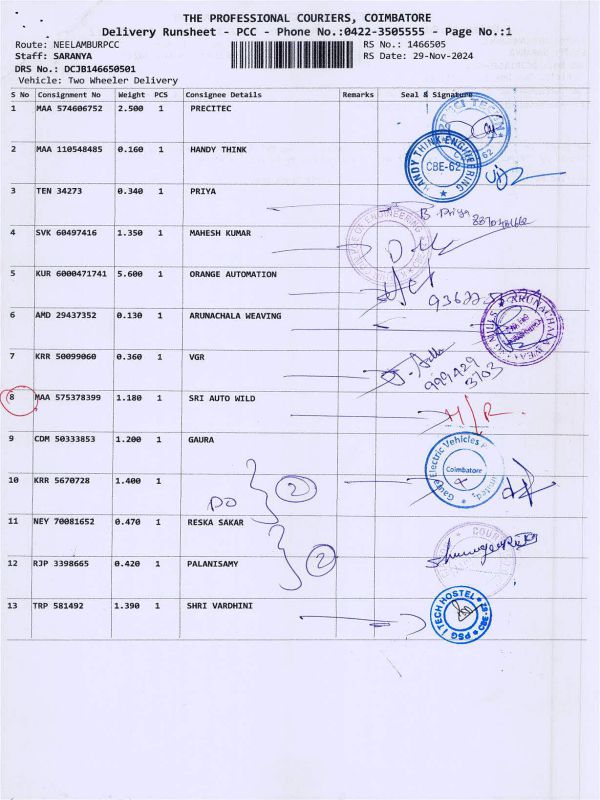 THE PROFESSIONAL COURIERS, COIMBATORE
Delivery Runsheet - PCC - Phone No.:0422-3505555 - Page No.:1
Route: NEELAMBURPCC RS No.: 1466505
Staff: SARANYA RS Date: 29-Nov-2024
DRS No.: DCJB146650501
Vehicle: Two Wheeler Delivery
S No Consignment No Weight PCS Consignee Details Remarks Seal & Signature
1 MAA 574606752 2.500 1 PRECITEC
2 MAA 110548485 0.160 1 HANDY THINK
HANDY THINK ENGINEERING
CBE-62
3 TEN 34273 0.340 1 PRIYA
B. Priya
4 SVK 60497416 1.350 1 MAHESH KUMAR
5 KUR 6000471741 5.600 1 ORANGE AUTOMATION
6 AMD 29437352 0.130 1 ARUNACHALA WEAVING
7 KRR 50099060 0.360 1 VGR
999429
3703
8 MAA 575378399 1.180 1 SRI AUTO WILD
H/R
9 CDM 50333853 1.200 1 GAURA
Coimbatore
10 KRR 5670728 1.400 1
DO 2
11 NEY 70081652 0.470 1 RESKA SAKAR
12 RJP 3398665 0.420 1 PALANISAMY
2
13 TRP 581492 1.390 1 SHRI VARDHINI
PSG I TECH HOSTEL
CBE-62